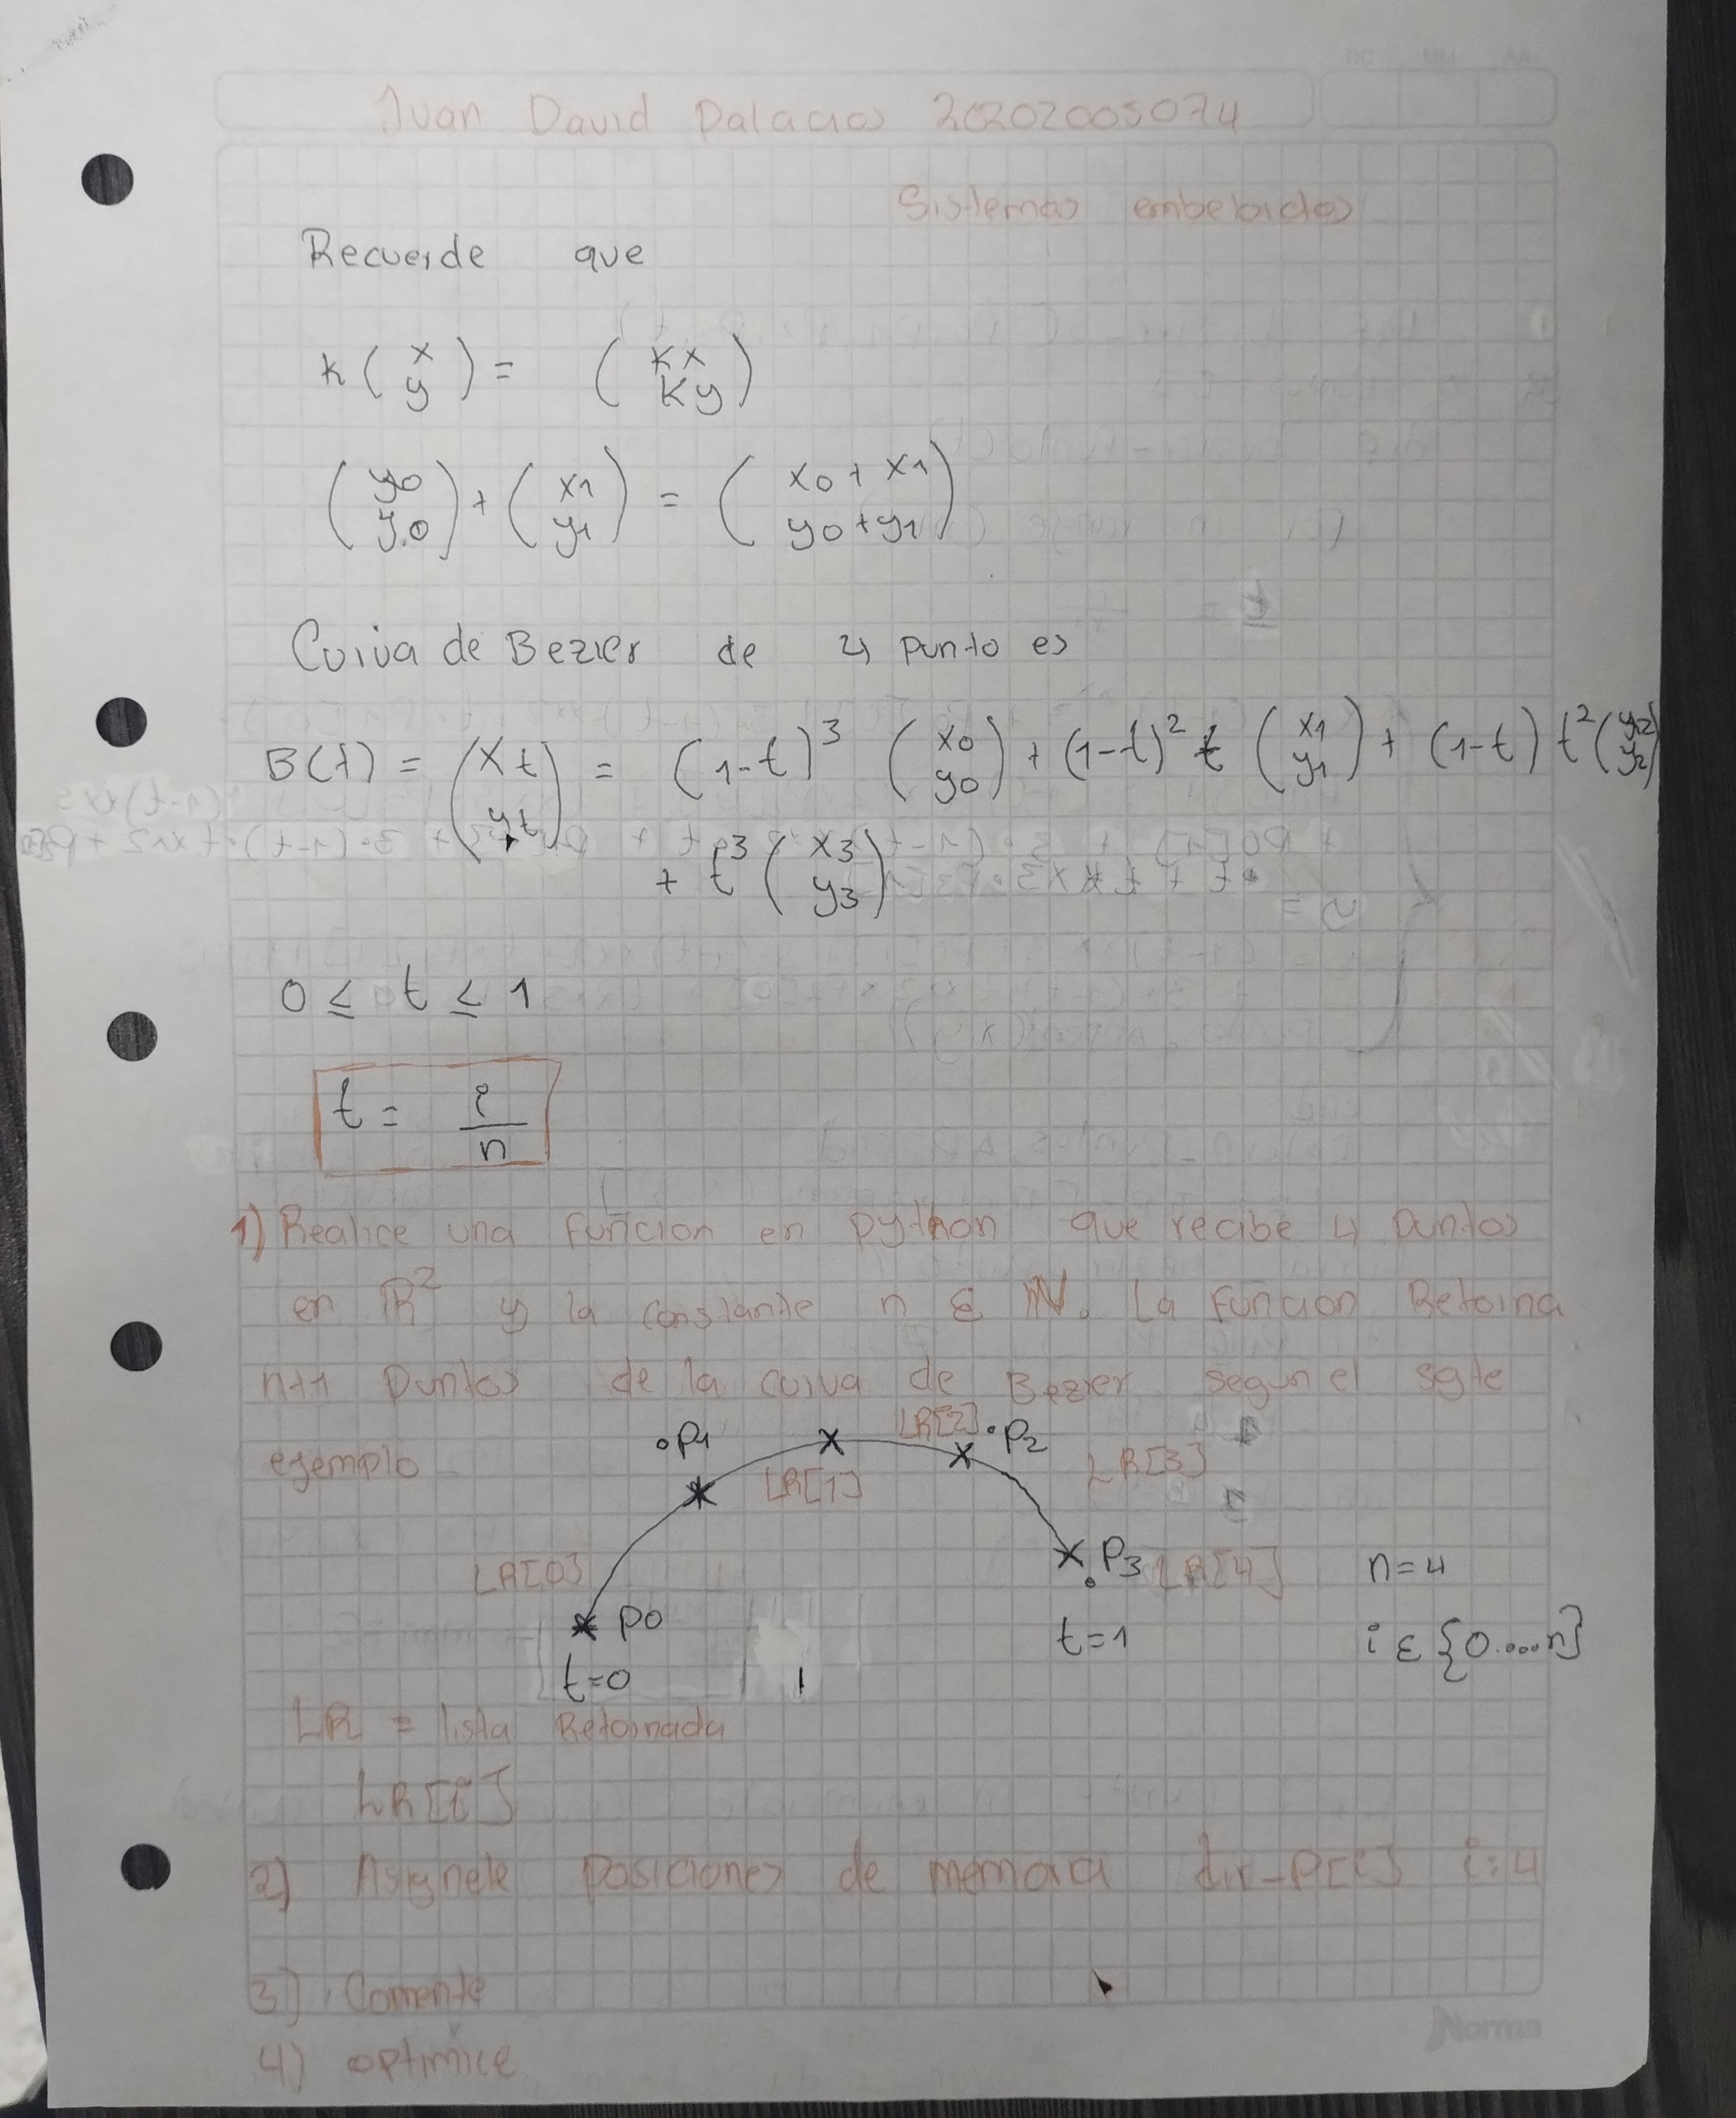 Juan David Palacios 20202005074
Sistemas embebidos
Recuerde que
k ( x y ) = ( kx ky )
( y0 y0 ) + ( x1 y1 ) = ( x0 + x1 y0 + y1 )
Curva de Bezier de 4 punto es
B(t) = ( xt yt ) = (1-t)³ ( x0 y0 ) + (1-t)² t ( x1 y1 ) + (1-t) t² ( y2 y2 )
+ t³ ( x3 y3 )
0 ≤ t ≤ 1
t = i/n
1) Realice una funcion en python que recibe 4 puntos
en R² y la constante n ε N. La funcion Retorna
n+1 puntos de la curva de Bezier segun el sgte
ejemplo
.P1 LR[2] .P2
LR[1] LR[3]
LR[0] P3 LR[4] n=4
P0
t=0 t=1 i ε {0....n}
LR = lista Retornada
LR[i]
2) Asignele posiciones de memoria dir-P[i] i:4
3) Comente
4) optimice
Norma